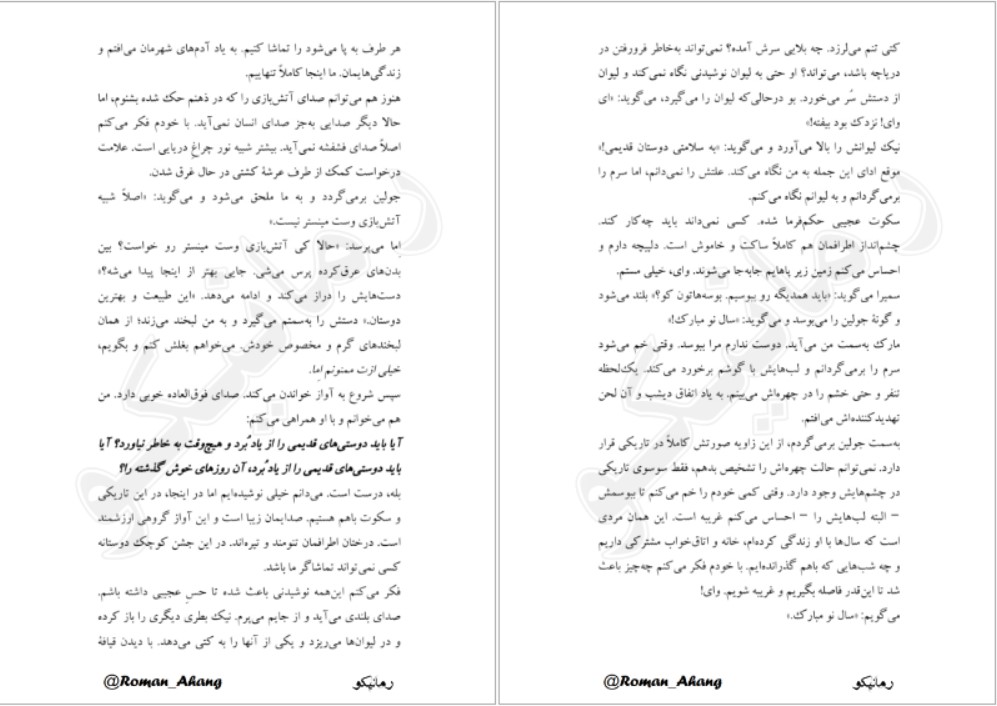 هر طرف به پا می‌شود را تماشا کنیم. به یاد آدم‌های شهرمان می‌افتم و
زندگی‌هایمان. ما اینجا کاملاً تنهاییم.
هنوز هم می‌توانم صدای آتش‌بازی را که در ذهنم حک شده بشنوم، اما
حالا دیگر صدایی به‌جز صدای انسان نمی‌آید. با خودم فکر می‌کنم
اصلاً صدای فشفشه نمی‌آید. بیشتر شبیه نور چراغِ دریایی است. علامت
درخواست کمک از طرف عرشهٔ کشتی در حال غرق شدن.
جولین برمی‌گردد و به ما ملحق می‌شود و می‌گوید: «اصلاً شبیه
آتش‌بازی وست مینستر نیست.»
اِما می‌پرسد: «حالا کی آتش‌بازی وست مینستر رو خواست؟ بین
بدن‌های عرق‌کرده پرس می‌شی. جایی بهتر از اینجا پیدا می‌شه؟»
دست‌هایش را دراز می‌کند و ادامه می‌دهد. «این طبیعت و بهترین
دوستان.» دستش را به‌سمتم می‌گیرد و به من لبخند می‌زند؛ از همان
لبخندهای گرم و مخصوص خودش. می‌خواهم بغلش کنم و بگویم،
خیلی ازت ممنونم اِما.
سپس شروع به آواز خواندن می‌کند. صدای فوق‌العاده خوبی دارد. من
هم می‌خوانم و با او همراهی می‌کنم:
آیا باید دوستی‌های قدیمی را از یاد بُرد و هیچ‌وقت به خاطر نیاورد؟ آیا
باید دوستی‌های قدیمی را از یاد بُرد، آن روزهای خوش گذشته را؟
بله، درست است. می‌دانم خیلی نوشیده‌ایم اما در اینجا، در این تاریکی
و سکوت باهم هستیم. صدایمان زیبا است و این آواز گروهی ارزشمند
است. درختان اطرافمان تنومند و تیره‌اند. در این جشن کوچک دوستانه
کسی نمی‌تواند تماشاگر ما باشد.
فکر می‌کنم این‌همه نوشیدنی باعث شده تا حسِ عجیبی داشته باشم.
صدای بلندی می‌آید و از جایم می‌پرم. نیک بطری دیگری را باز کرده
و در لیوان‌ها می‌ریزد و یکی از آنها را به کتی می‌دهد. با دیدن قیافهٔ
رمانیکو
@Roman_Ahang
کتی تنم می‌لرزد. چه بلایی سرش آمده؟ نمی‌تواند به‌خاطر فرورفتن در
دریاچه باشد، می‌تواند؟ او حتی به لیوان نوشیدنی نگاه نمی‌کند و لیوان
از دستش سُر می‌خورد. بو درحالی‌که لیوان را می‌گیرد، می‌گوید: «ای
وای! نزدک بود بیفته!»
نیک لیوانش را بالا می‌آورد و می‌گوید: «به سلامتی دوستان قدیمی!»
موقع ادای این جمله به من نگاه می‌کند. علتش را نمی‌دانم، اما سرم را
برمی‌گردانم و به لیوانم نگاه می‌کنم.
سکوت عجیبی حکم‌فرما شده. کسی نمی‌داند باید چه‌کار کند.
چشم‌انداز اطرافمان هم کاملاً ساکت و خاموش است. دلپیچه دارم و
احساس می‌کنم زمین زیر پاهایم جابه‌جا می‌شوند. وای، خیلی مستم.
سمیرا می‌گوید: «باید همدیگه رو ببوسیم. بوسه‌هاتون کو؟» بلند می‌شود
و گونهٔ جولین را می‌بوسد و می‌گوید: «سال نو مبارک!»
مارک به‌سمت من می‌آید. دوست ندارم مرا ببوسد. وقتی خم می‌شود
سرم را برمی‌گردانم و لب‌هایش با گوشم برخورد می‌کند. یک‌لحظه
تنفر و حتی خشم را در چهره‌اش می‌بینم. به یاد اتفاق دیشب و آن لحن
تهدیدکننده‌اش می‌افتم.
به‌سمت جولین برمی‌گردم، از این زاویه صورتش کاملاً در تاریکی قرار
دارد. نمی‌توانم حالت چهره‌اش را تشخیص بدهم، فقط سوسوی تاریکی
در چشم‌هایش وجود دارد. وقتی کمی خودم را خم می‌کنم تا ببوسمش
– البته لب‌هایش را – احساس می‌کنم غریبه است. این همان مردی
است که سال‌ها با او زندگی کرده‌ام، خانه و اتاق‌خواب مشترکی داریم
و چه شب‌هایی که باهم گذرانده‌ایم. با خودم فکر می‌کنم چه‌چیز باعث
شد تا این‌قدر فاصله بگیریم و غریبه شویم. وای!
می‌گویم: «سال نو مبارک.»
رمانیکو
@Roman_Ahang